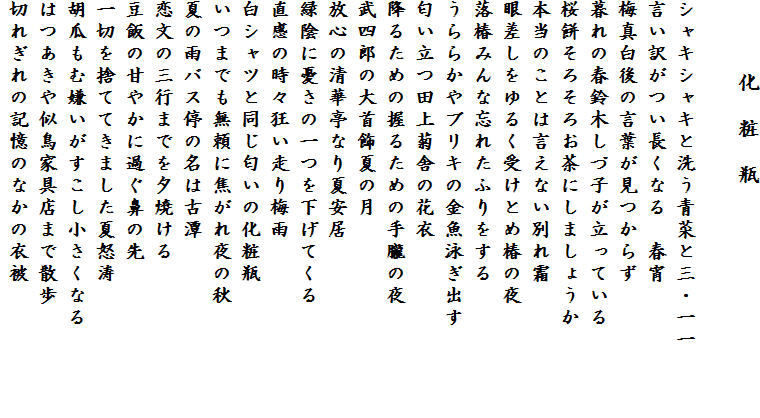 化粧瓶
シャキシャキと洗う青菜と三・一一
言い訳がつい長くなる　春宵
梅真白後の言葉が見つからず
暮れの春鈴木しづ子が立っている
桜餅そろそろお茶にしましょうか
本当のことは言えない別れ霜
眼差しをゆるく受けとめ椿の夜
落椿みんな忘れたふりをする
うららかやブリキの金魚泳ぎ出す
匂い立つ田上菊舎の花衣
降るための握るための手朧の夜
武四郎の大首飾夏の月
放心の清華亭なり夏安居
緑陰に憂さの一つを下げてくる
直感の時々狂い走り梅雨
白シャツと同じ匂いの化粧瓶
いつまでも無頼に焦がれ夜の秋
夏の雨バス停の名は古潭
恋文の三行までを夕焼ける
豆飯の甘やかに過ぐ鼻の先
一切を捨ててきました夏怒涛
胡瓜もむ嫌いがすこし小さくなる
はつあきや似鳥家具店まで散歩
切れぎれの記憶のなかの衣被